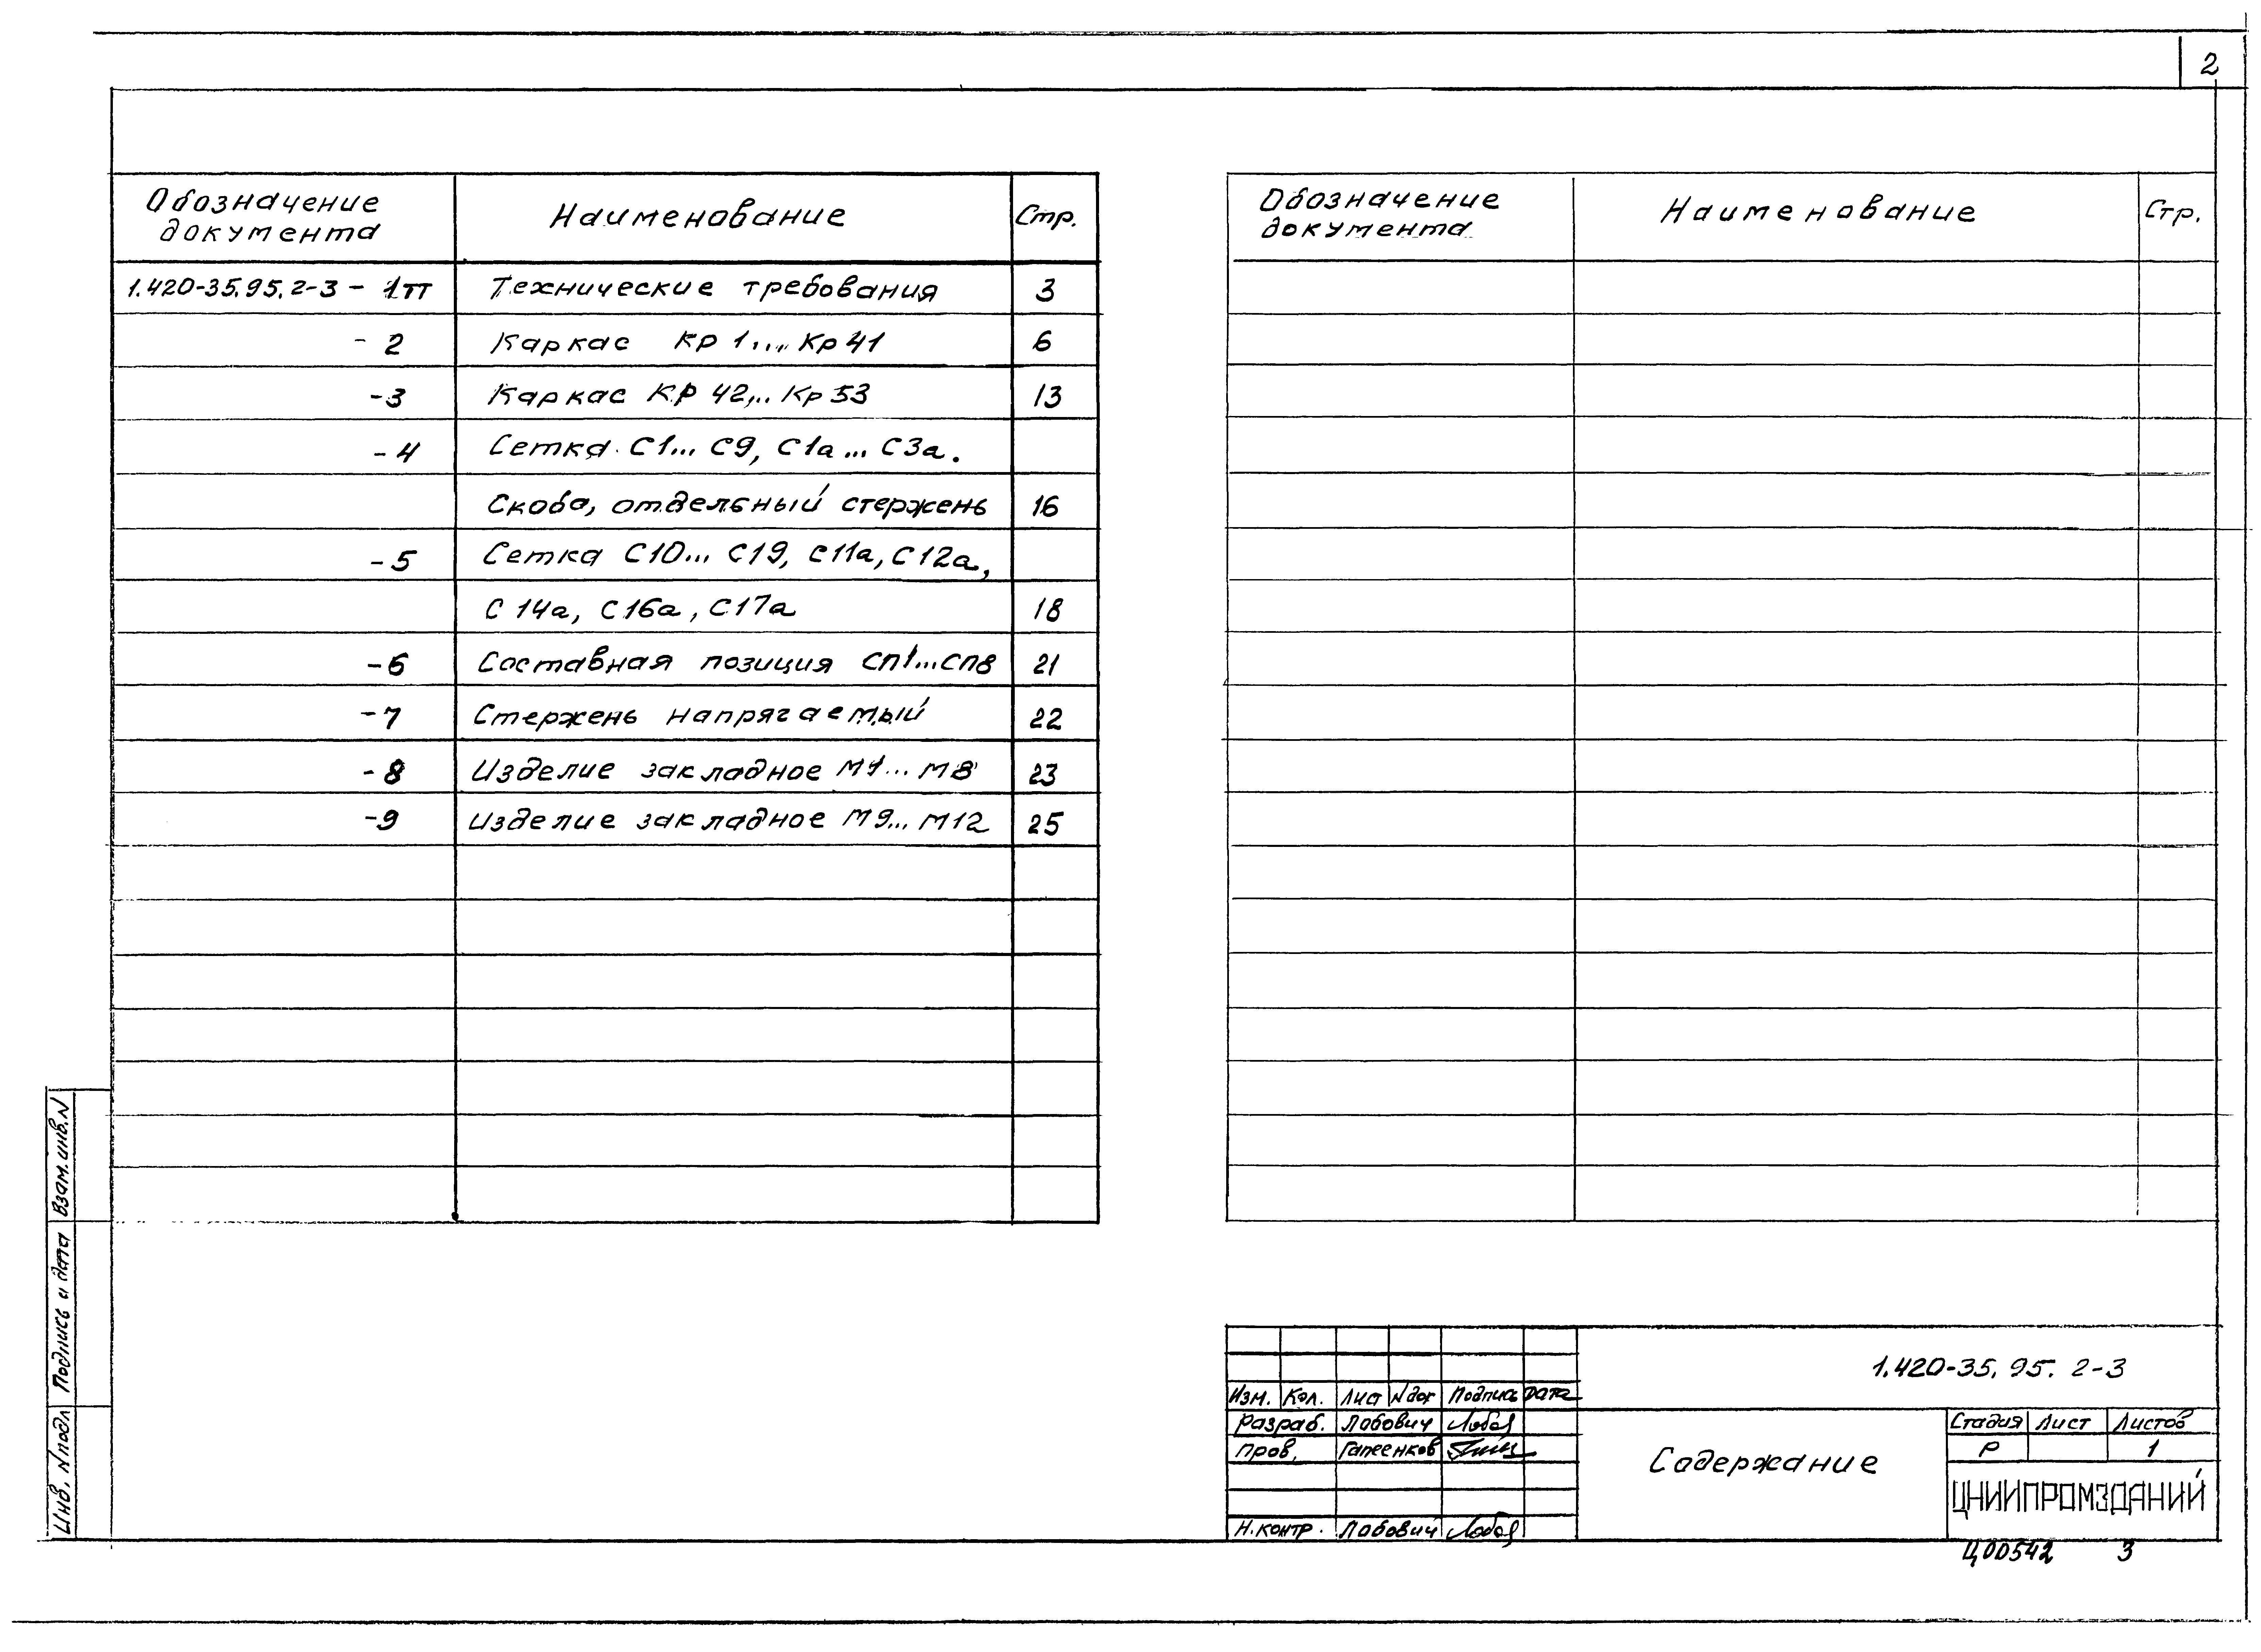 2
Обозначение документа Наименование Стр.
1.420-35.95.2-3 - 1тт Технические требования 3
- 2 Каркас Кр 1... Кр 41 6
- 3 Каркас КР 42... Кр 53 13
- 4 Сетка С1... С9, С1а... С3а.
Скоба, отдельный стержень 16
- 5 Сетка С10... С19, С11а, С12а,
С 14а, С 16а, С17а 18
- 6 Составная позиция СП1...СП8 21
- 7 Стержень напрягаемый 22
- 8 Изделие закладное М1... М8 23
- 9 Изделие закладное М9... М12 25
Обозначение документа Наименование Стр.
Взам.инв.N
Подпись и дата
Инв. N подл
1.420-35.95. 2-3
Изм. Кол. Лист Nдок Подпись Дата
Разраб. Лабович
Пров. Гапеенков
Н.контр. Лабович
Содержание
Стадия Лист Листов
Р 1
ЦНИИПРОМЗДАНИЙ
Ц00542 3